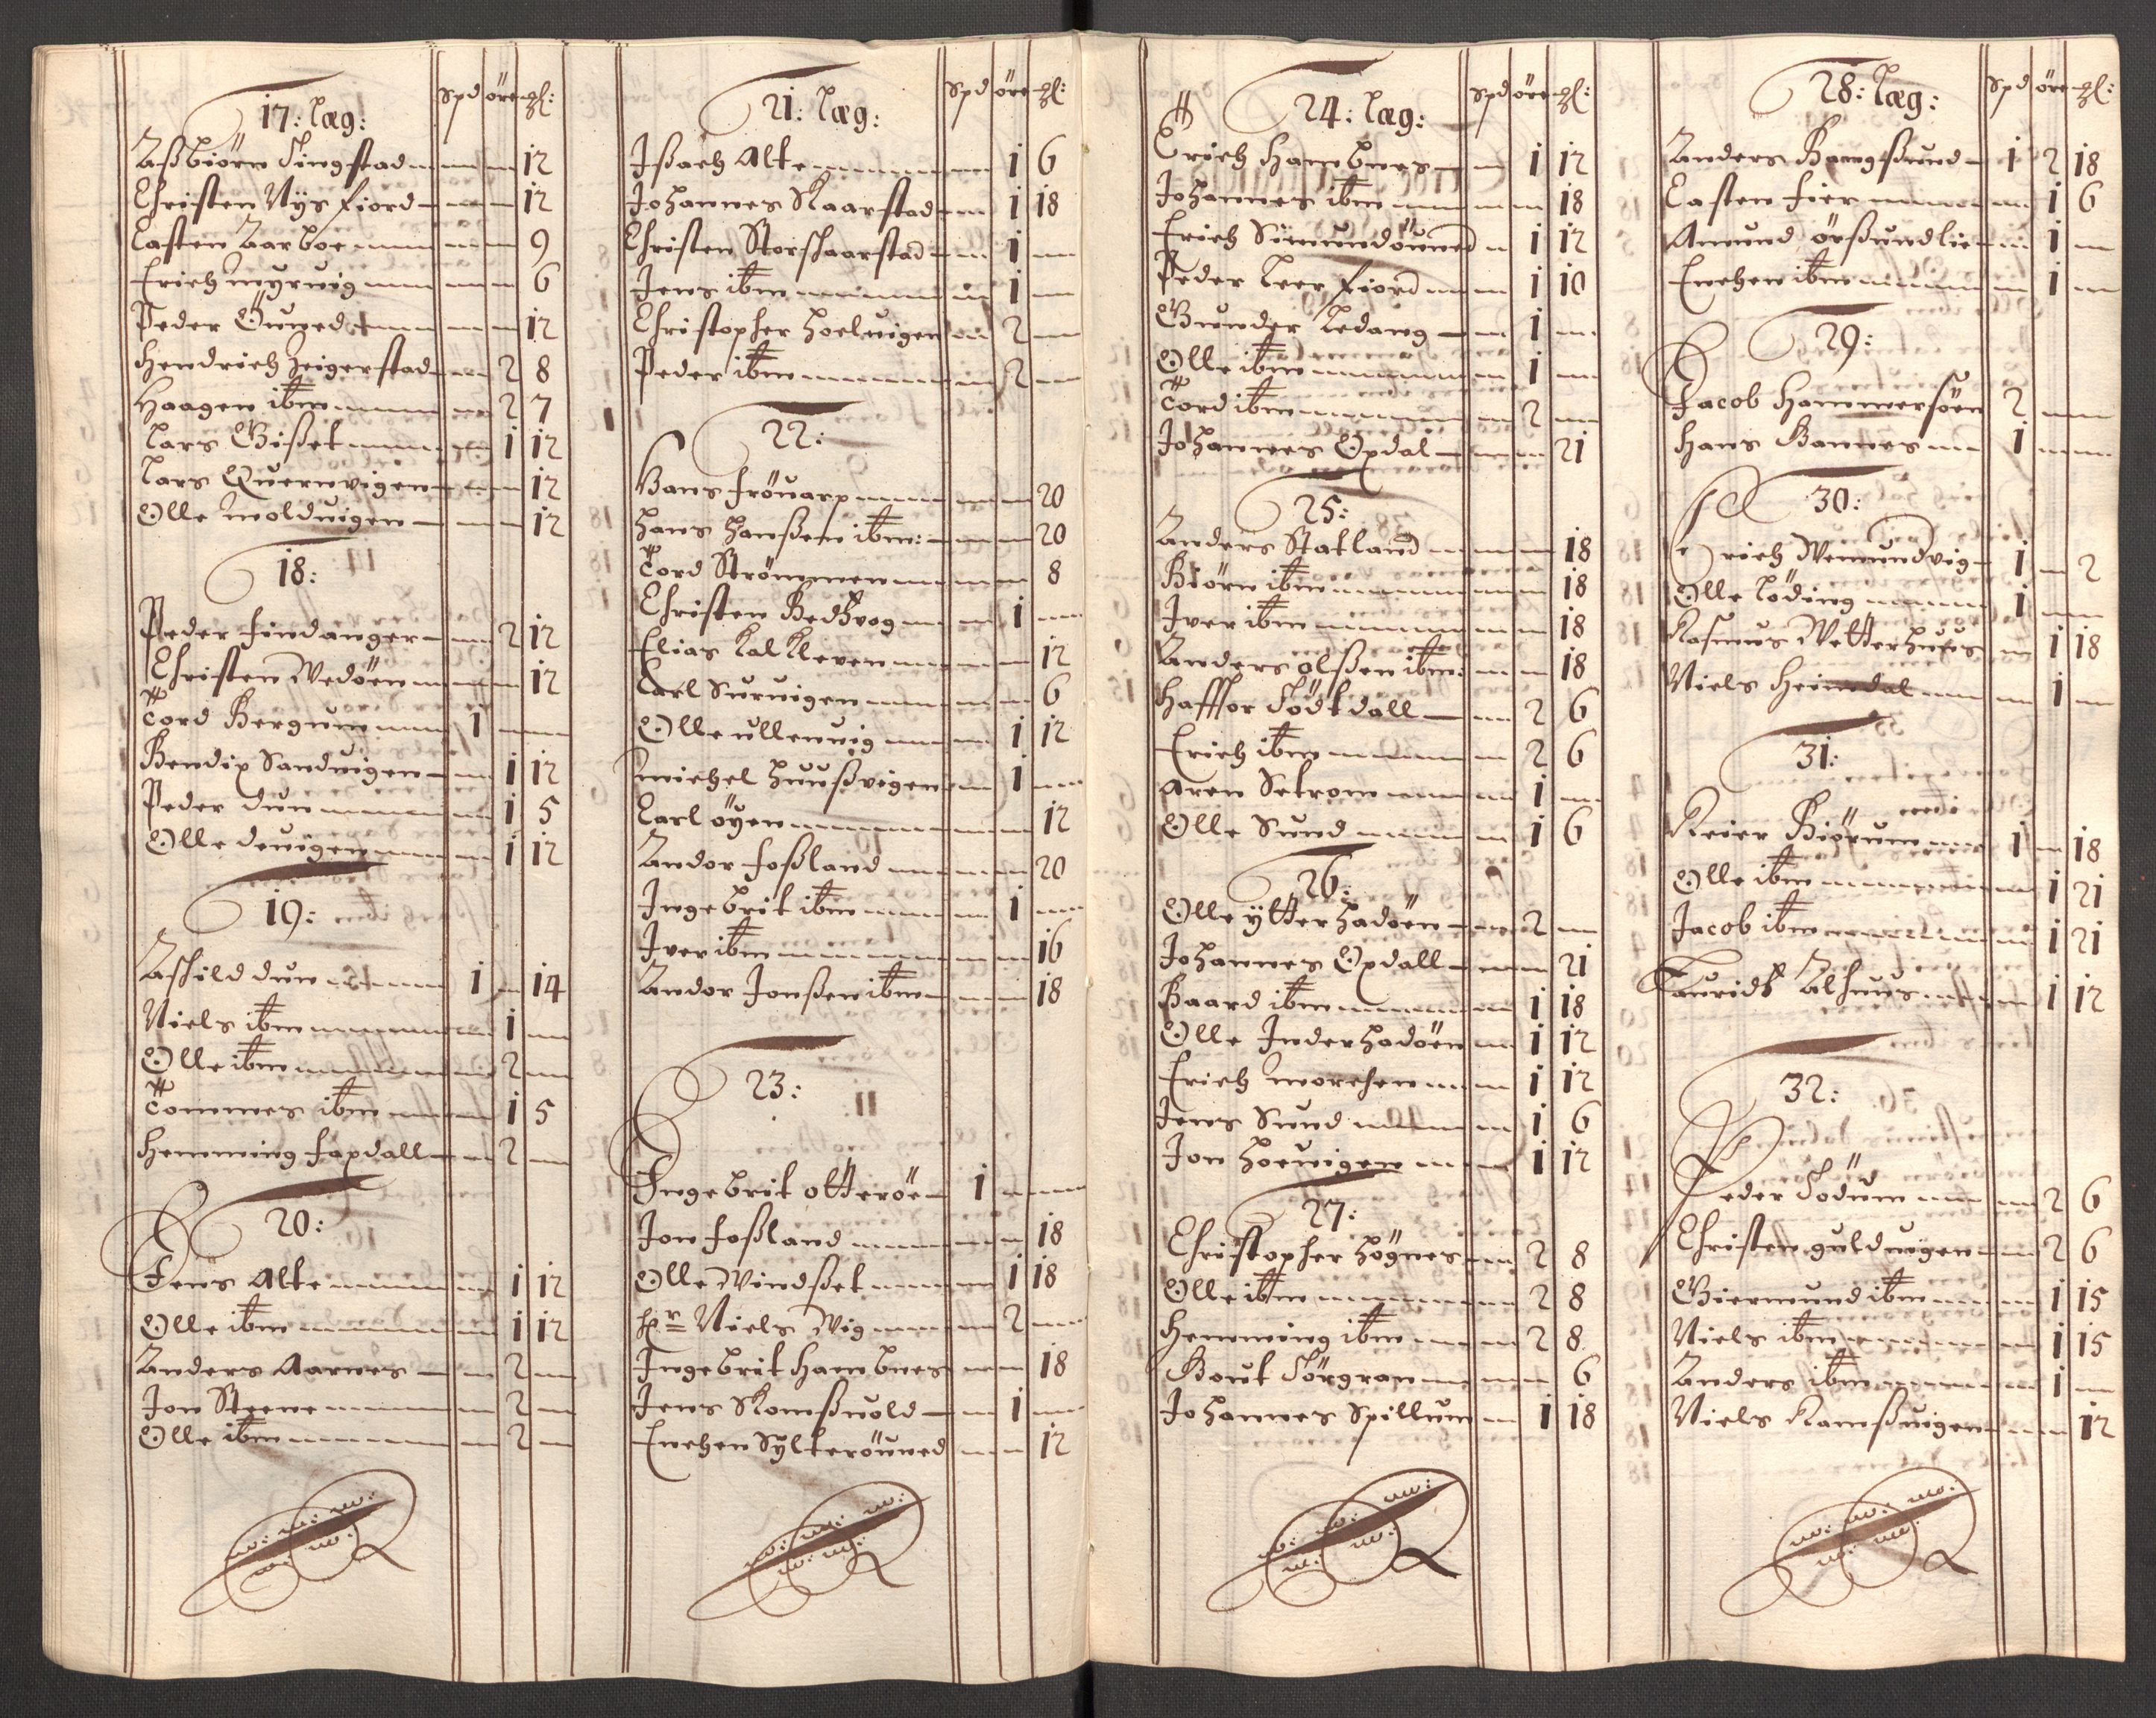 17: Læg: Spd öre gl:
Aßbiörn Tingstad 12
Christen Nysfiord 12
Casten Aarboe 9
Erich Myrvig 6
Peder Öuved 12
Hendrich Zeigerstad 2 8
Haagen ibm 2 7
Lars Gißet 1 12
Lars Quernvigen 12
Olle Moldvigen 12
18:
Peder Findanger 2 12
Christen Vedöen 12
Tord Bergum 1
Bendix Sandvigen 1 12
Peder Dun 1 5
Olle Devigen 1 12
19:
Aschild Dun 1 14
Niels ibm 1
Olle ibm 2
Tommes ibm 1 5
Hemming Faxdall 2
20:
Jens Alte 1 12
Olle ibm 1 12
Anders Aarnes 2
Jon Steene 2
Olle ibm 2
21: Læg: Spd öre gl:
Ißach Alte 1 6
Johannes Skaarstad 1 18
Christen Storskaarstad 1
Jens ibm 1
Christopher Hoelvigen 2
Peder ibm 2
22:
Hans Fröuarp 20
Hans Hanßen ibm: 20
Tord Strömmen 8
Christen Bedhvog 1
Elias Kalkleven 12
Carl Survigen 6
Olle Ullenvig 1 12
Michel Huußvigen 1
Carl Öyen 12
Andor Foßland 20
Ingebrit ibm 1
Iver ibm 16
Andor Jonßen ibm 18
23:
Ingebrit Otterøe 1
Jon Foßland 18
Olle Vindßet 1 18
Hr Niels Vig 2
Ingebrit Hambnes 18
Jens Skomßvold 1
Enchen Sylteröuned 12
24: Læg: Spd öre gl:
Erich Hambnes 1 12
Johannes ibm 18
Erich Simundöuned 1 12
Peder Leerfiord 1 10
Gunder Ledang 1
Olle ibm 1
Tord ibm 2
Johannes Opdal 21
25:
Anders Statland 18
Biörn ibm 18
Iver ibm 18
Anders Olßen ibm: 18
Haffor Södtdall 2 6
Erich ibm 2 6
Aren Setrom 1
Olle Sund 1 6
26:
Olle Ytterhadöen 2
Johannes Opdall 21
Baard ibm 1 18
Olle Inderhadöen 1 12
Erich Morchen 1 12
Jens Sund 1 6
Jon Hoevigen 1 12
27:
Christopher Högnes 2 8
Olle ibm 2 8
Hemming ibm 2 8
Bout Sörgran 6
Johannes Spillum 1 18
28: Læg: Spd öre gl:
Anders Bangsund 1 2 18
Casten Fier 1 6
Amund Örßundlie 1
Enchen ibm 1
29:
Jacob Hammersöen 2
Hans Bannes 1
30:
Erich Vemundvig 1 2
Olle Löding 1
Rasmus Vetterhuus 1 18
Niels Heimdal 1
31:
Reier Biörum 1 18
Olle ibm 1 21
Jacob ibm 1 21
Lauridtz Alhuus 1 12
32:
Peder Södum 2 6
Christen Guldvigen 2 6
Giermund ibm 1 15
Niels ibm 1 15
Anders ibm 1
Niels Ramßvigen 12